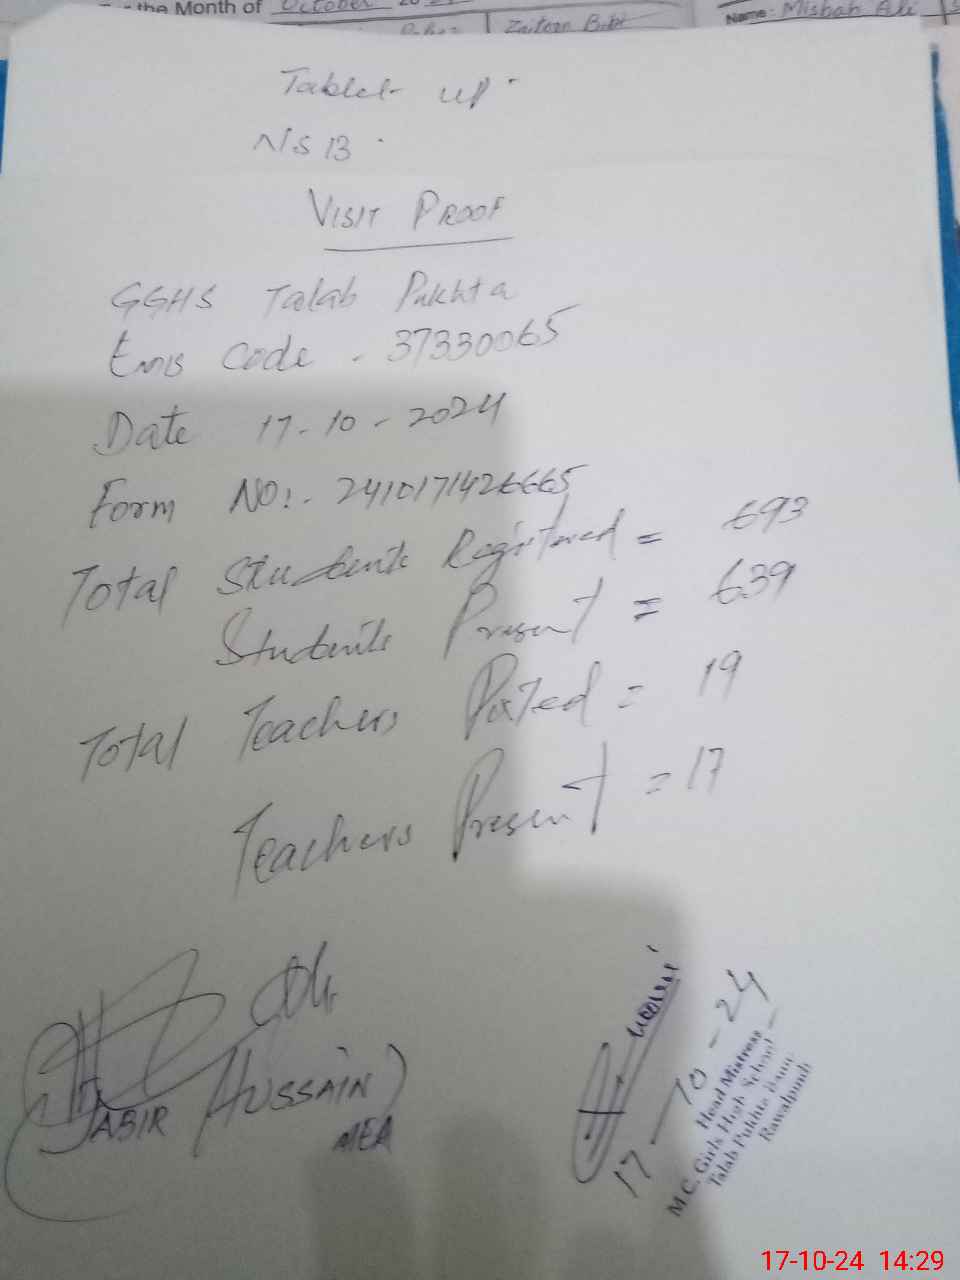 the Month of October 20
Zaitoon Bibi
Name: Misbah Ali
Tablet up
NS 13
VISIT PROOF
GGHS Talab Pukhta
Emis Code - 37330065
Date 17-10-2024
Form NO:- 2410171426665
Total Students Registered = 693
Students Present = 639
Total Teachers Posted = 19
Teachers Present = 17
JABIR HUSSAIN)
MEA
17-10-24
Head Mistress
M.C. Girls High School
Talab Pukhta
Rawalpindi
17-10-24 14:29